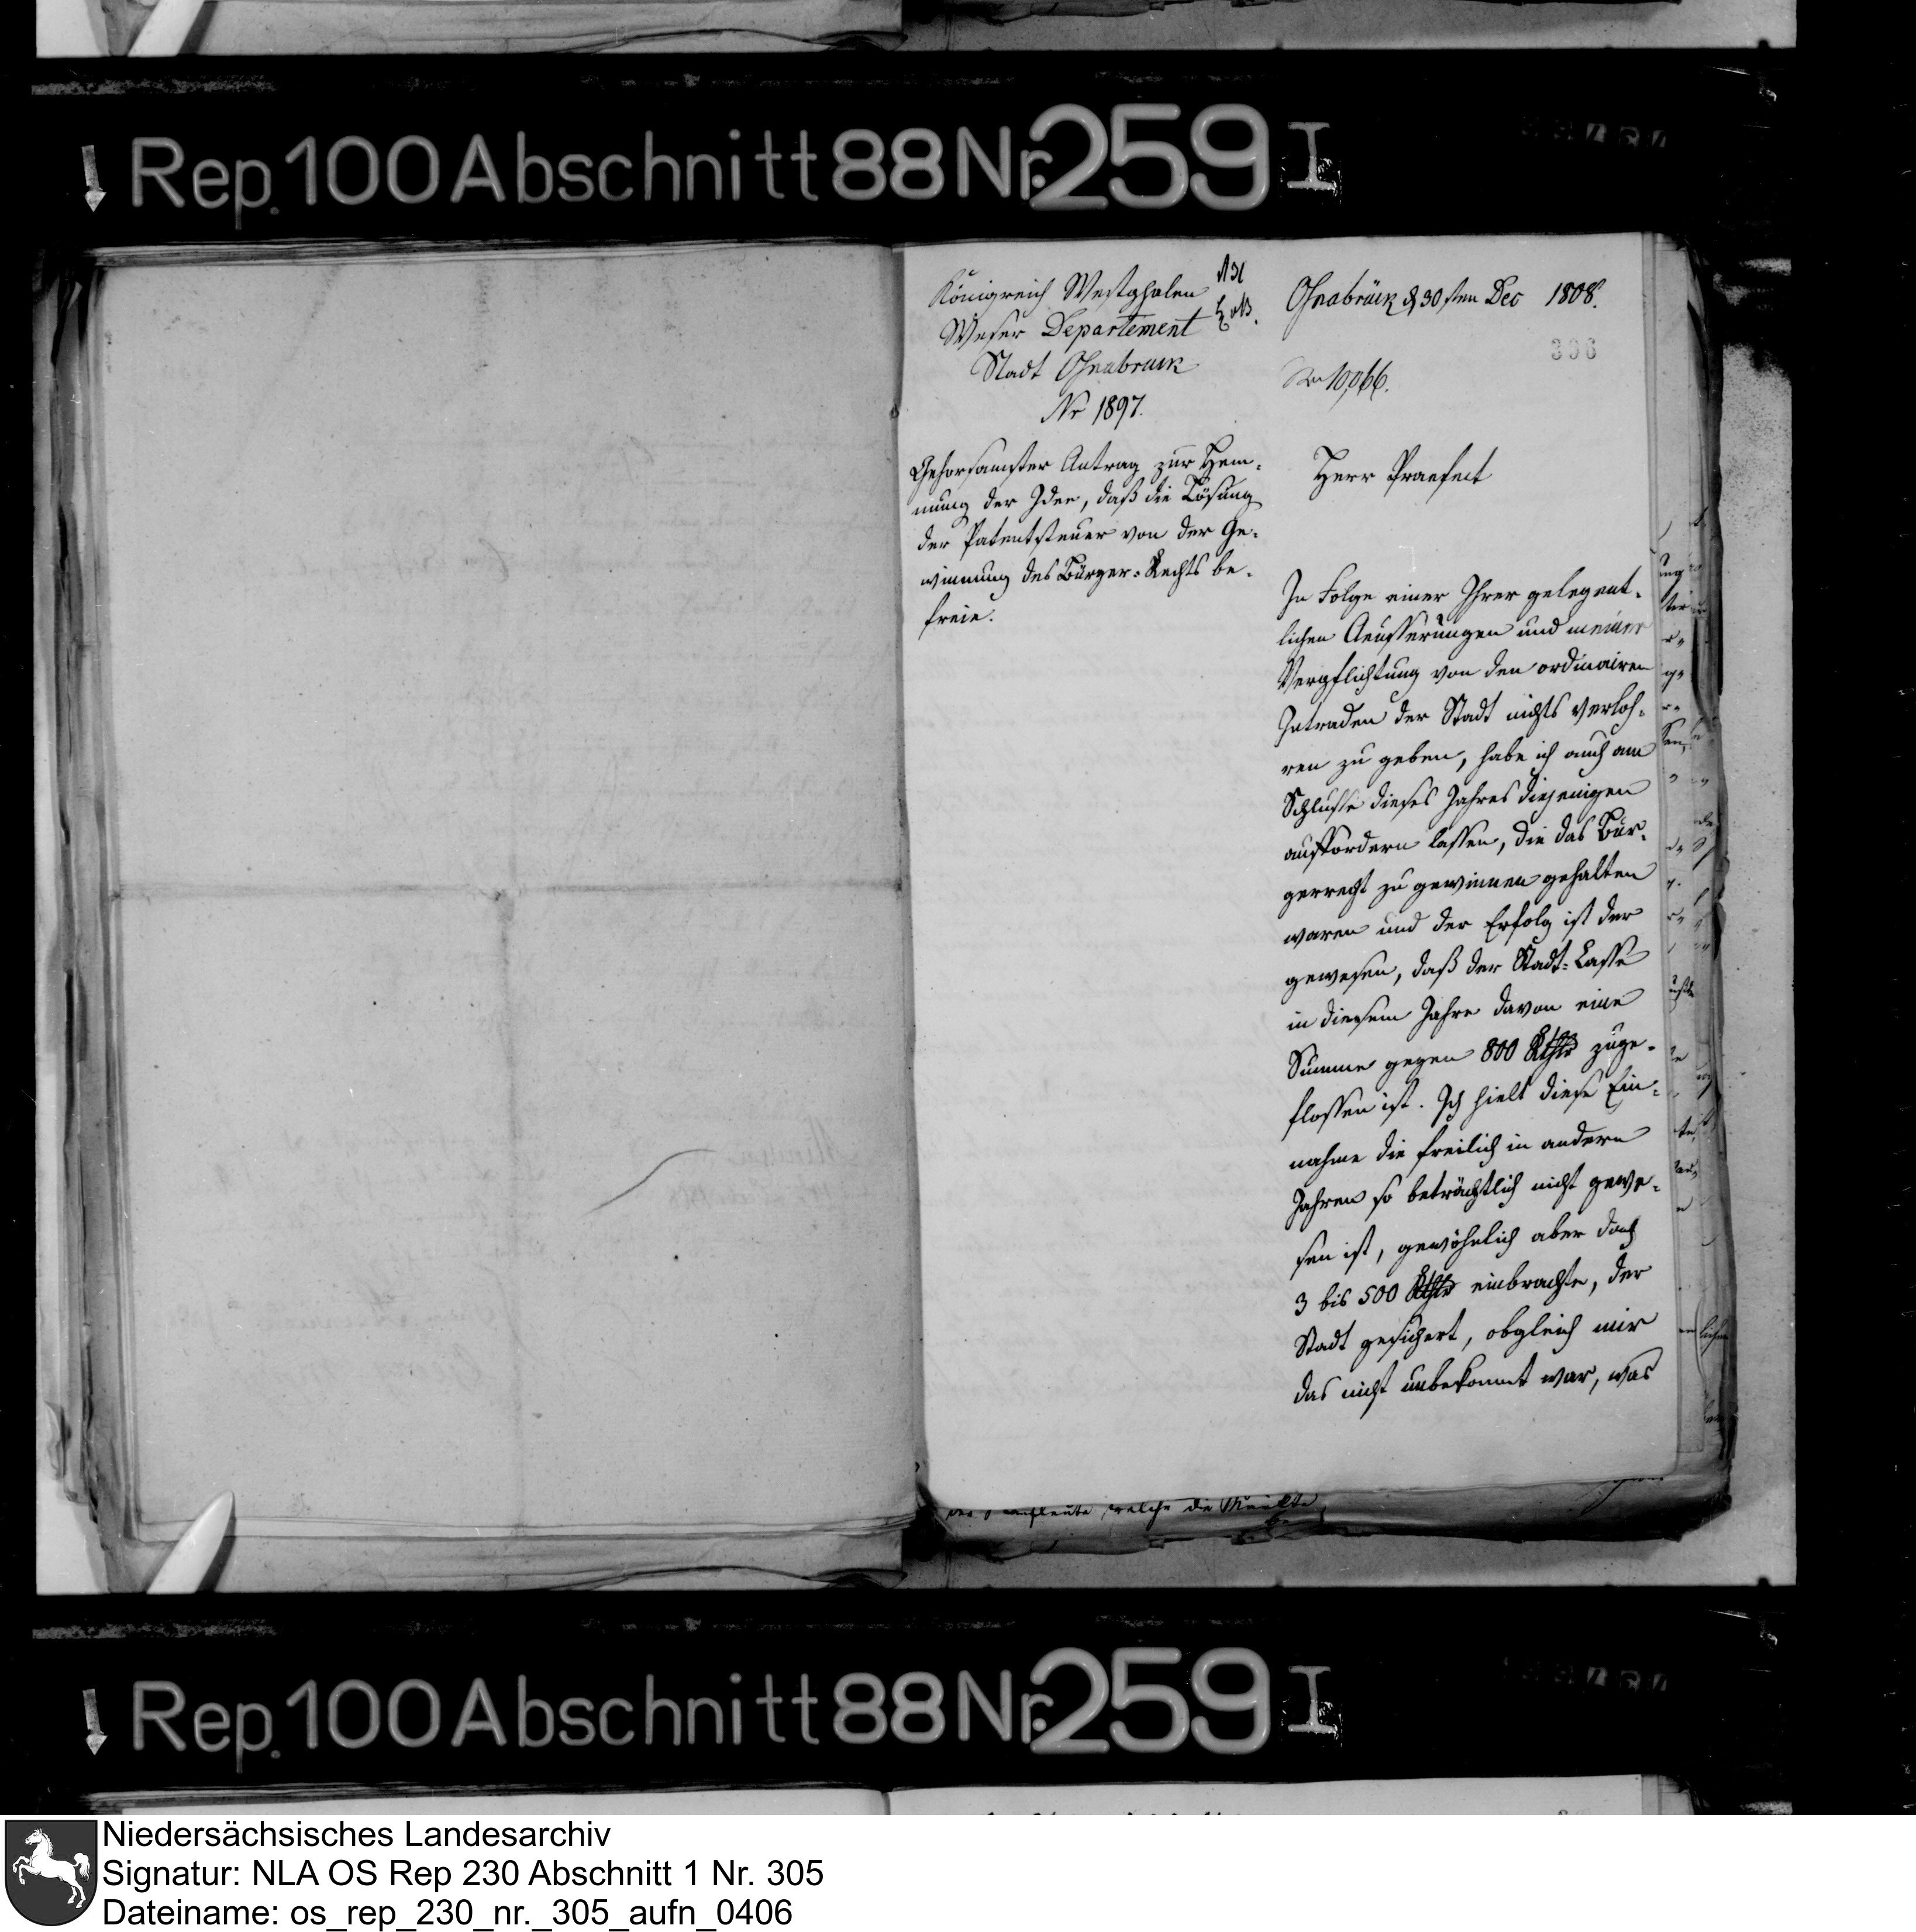 Rep. 100 Abschnitt 88 Nr. 259 I
Königreich Westphalen
Weser Departement
Stadt Osnabruck
Nr 1897.
Gehorsamster Antrag zur Hem-
mung der Idee, daß die Lösung
der Patentsteuer von der Ge-
winnung des Bürger-Rechts be-
freie.
Osnabrück d 30sten Dec 1808.
306
10,066.
Herr Praefect
In Folge einer Ihrer gelegent-
lichen Aeusserungen und meiner
Verpflichtung von den ordinairen
Intraden der Stadt nichts verloh-
ren zu geben, habe ich auch am
Schlusse dieses Jahres diejenigen
auffordern lassen, die das Bür-
gerrecht zu gewinnen gehalten
waren und der Erfolg ist der
gewesen, daß der Stadt-Casse
in diesem Jahre davon eine
Summe gegen 800 Rthlr zuge-
flossen ist. Ich hielt diese Ein-
nahme die freilich in andern
Jahren so beträchtlich nicht gewe-
sen ist, gewöhnlich aber doch
3 bis 500 Rthlr einbrachte, der
Stadt gesichert, obgleich mir
das nicht unbekannt war, was
welche die
Rep. 100 Abschnitt 88 Nr. 259 I
Niedersächsisches Landesarchiv
Signatur: NLA OS Rep 230 Abschnitt 1 Nr. 305
Dateiname: os_rep_230_nr._305_aufn_0406